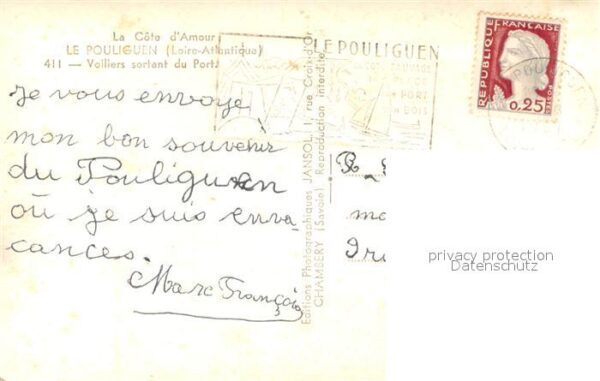 La Côte d'Amour
LE POULIGUEN (Loire-Atlantique)
411 — Voiliers sortant du Port
Je vous envoye
mon bon souvenir
du Pouliguen
où je suis en va
cances.
Marc François
Editions Photographiques JANSOL, 11, rue Croix-d'Or
CHAMBERY (Savoie) Reproduction interdite
LE POULIGUEN
PORT
BOIS
REPUBLIQUE FRANÇAISE
POSTES
0,25
privacy protection
Datenschutz